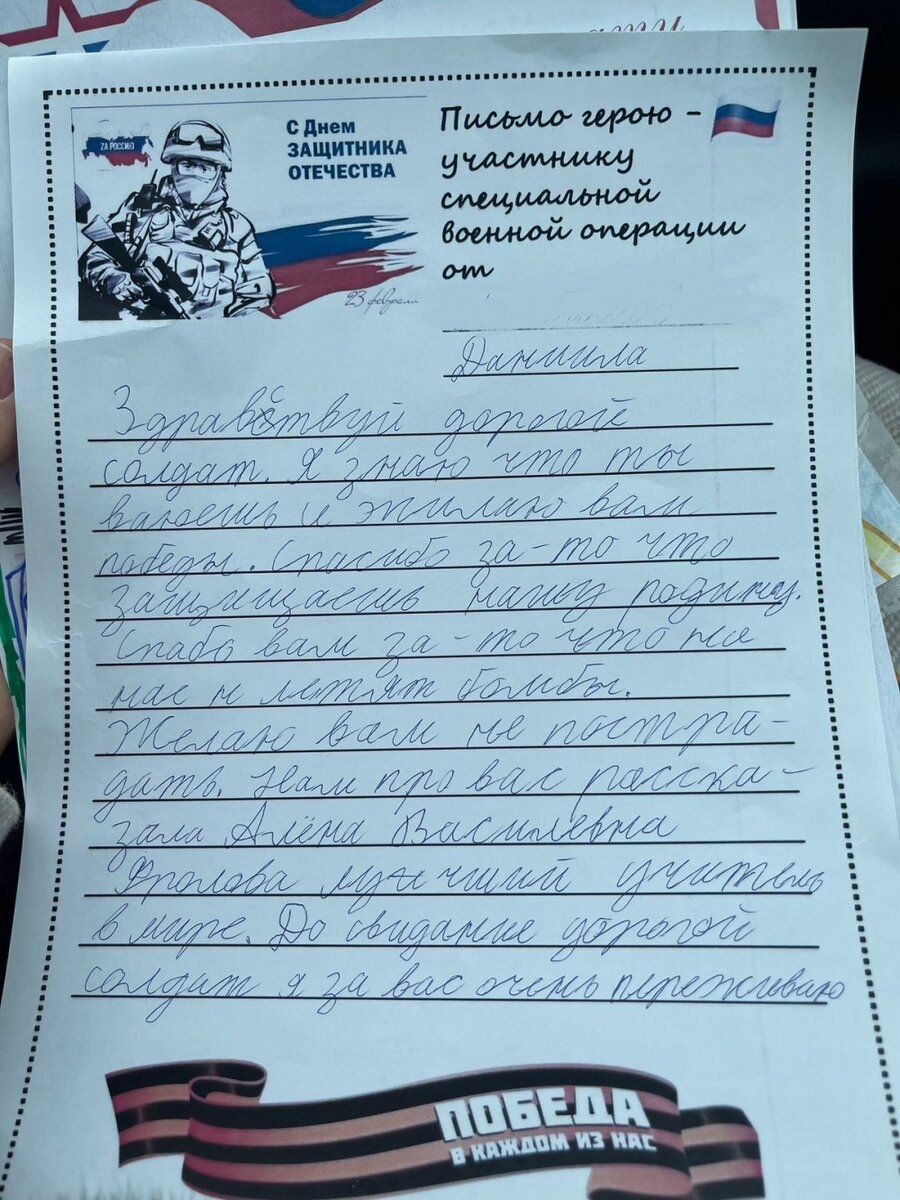 ZА РОССИЮ
С Днем
ЗАЩИТНИКА
ОТЕЧЕСТВА
23 февраля
Письмо герою –
участнику
специальной
военной операции
от
Даниила
Здравствуй дорогой
солдат. Я знаю что ты
ваюешь и жилаю вам
победы. Спасибо за-то что
защищаешь нашу родину.
Спабо вам за-то что на
нас н летят бомбы.
Желаю вам не постра-
дать. Нам про вас расска-
зала Алёна Василевна
Фролова лучший учитель
в мире. До свидание дорогой
солдат я за вас очень переживаю
ПОБЕДА
В КАЖДОМ ИЗ НАС